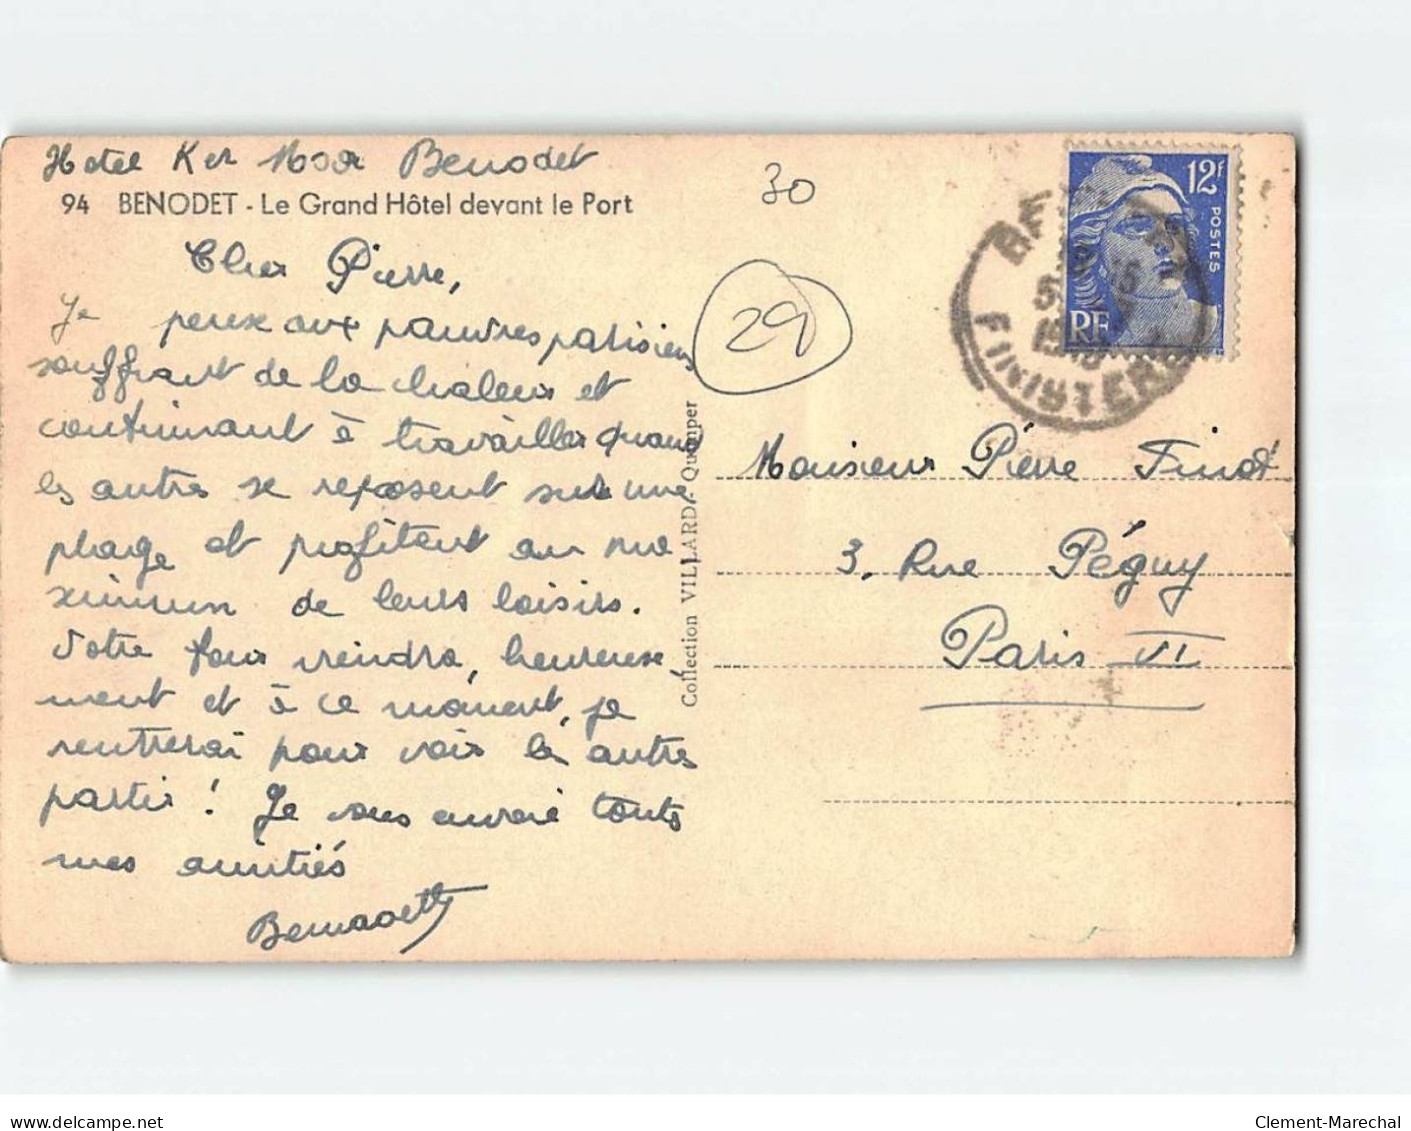 Hotel Ker Moor Benodet
94 BENODET - Le Grand Hôtel devant le Port
30
Cher Pierre,
Je pense aux pauvres parisiens
souffrant de la chaleur et
continuant à travailler quand
les autres se reposent sur une
plage et profitent au ma
ximum de leurs loisirs.
Votre tour viendra, heureuse
ment et à ce moment, je
rentrerai pour voir les autres
partir ! Je vous envoie toutes
mes amitiés
Bernadette
29
Collection VILLARD - Quimper
12F
POSTES
RF
FINISTERE
Monsieur Pierre Finot
3, Rue Péguy
Paris VI
delcampe.net
Clement-Marechal